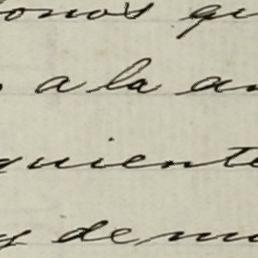 onos qu
a la an
guiente
y de mu